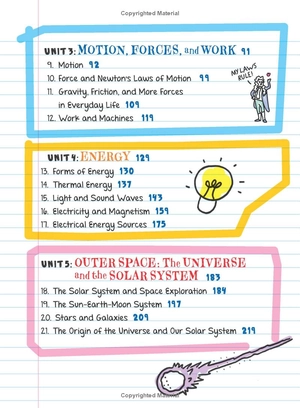 Copyrighted Material
UNIT 3: MOTION, FORCES, and WORK 91
9. Motion 92
10. Force and Newton's Laws of Motion 99
11. Gravity, Friction, and More Forces
in Everyday Life 109
12. Work and Machines 119
MY LAWS
RULE!
UNIT 4: ENERGY 129
13. Forms of Energy 130
14. Thermal Energy 137
15. Light and Sound Waves 143
16. Electricity and Magnetism 159
17. Electrical Energy Sources 175
UNIT 5: OUTER SPACE: The UNIVERSE
and the SOLAR SYSTEM 183
18. The Solar System and Space Exploration 184
19. The Sun-Earth-Moon System 197
20. Stars and Galaxies 209
21. The Origin of the Universe and Our Solar System 219
Copyrighted Material